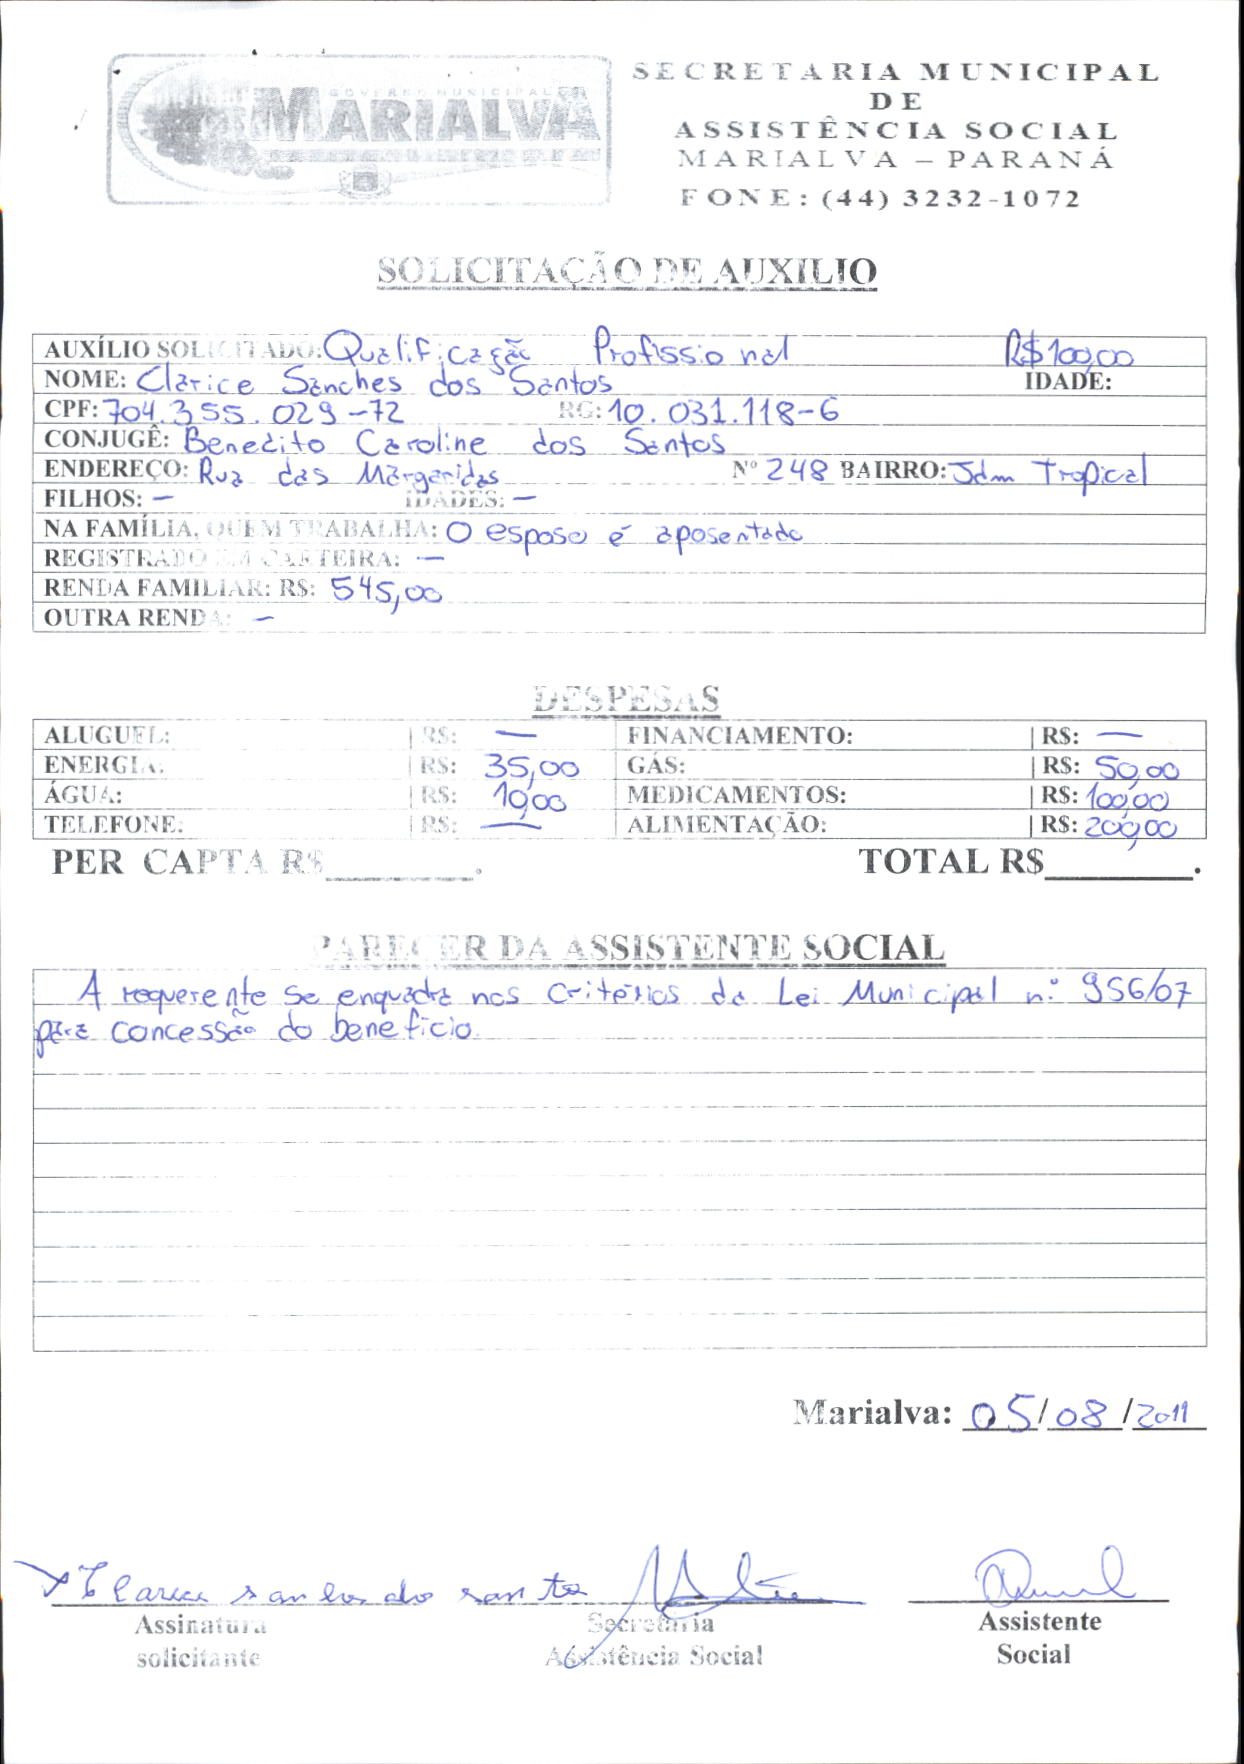 GOVERNO MUNICIPAL
MARIALVA
SECRETARIA MUNICIPAL
DE
ASSISTÊNCIA SOCIAL
MARIALVA – PARANÁ
FONE: (44) 3232-1072
SOLICITAÇÃO DE AUXILIO
AUXÍLIO SOLICITADO: Qualificação Profissional R$100,00
NOME: Clarice Sanches dos Santos IDADE:
CPF: 704.355.029-72 RG: 10.031.118-6
CONJUGÊ: Benedito Caroline dos Santos
ENDEREÇO: Rua das Margaridas Nº 248 BAIRRO: Jdm Tropical
FILHOS: – IDADES: –
NA FAMÍLIA, QUEM TRABALHA: O esposo é aposentado
REGISTRADO EM CARTEIRA: –
RENDA FAMILIAR: R$: 545,00
OUTRA RENDA: –
DESPESAS
ALUGUEL: R$: — FINANCIAMENTO: R$: —
ENERGIA: R$: 35,00 GÁS: R$: 50,00
ÁGUA: R$: 10,00 MEDICAMENTOS: R$: 100,00
TELEFONE: R$: — ALIMENTAÇÃO: R$: 200,00
PER CAPTA R$________. TOTAL R$________.
PARECER DA ASSISTENTE SOCIAL
A requerente se enquadra nos critérios da Lei Municipal n.º 956/07
para concessão do benefício.
Marialva: 05/08/2011
Assinatura Secretaria Assistente
solicitante Assistência Social Social